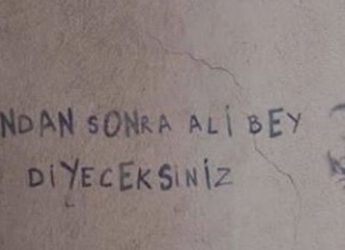 NDAN SONRA ALİ BEY
DİYECEKSİNİZ